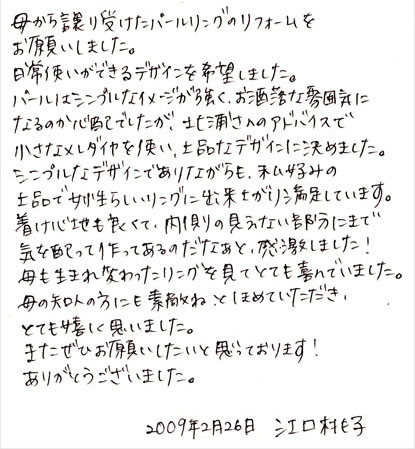 母から譲り受けたパールリングのリフォームを
お願いしました。
日常使いができるデザインを希望しました。
パールはシンプルなイメージが強く、お洒落な雰囲気に
なるのか心配でしたが、土浦さんのアドバイスで
小さなメレダイヤを使い、上品なデザインに決めました。
シンプルなデザインでありながらも、私好みの
上品で女性らしいリングに出来上がり満足しています。
着け心地も良くて、内側の見えない部分にまで
気を配って作ってあるのだなあと、感激しました!
母も生まれ変わったリングを見てとても喜んでいました。
母の知人の方にも素敵ね とほめていただき、
とても嬉しく思いました。
またぜひお願いしたいと思っております!
ありがとうございました。
2009年2月26日 江口 子